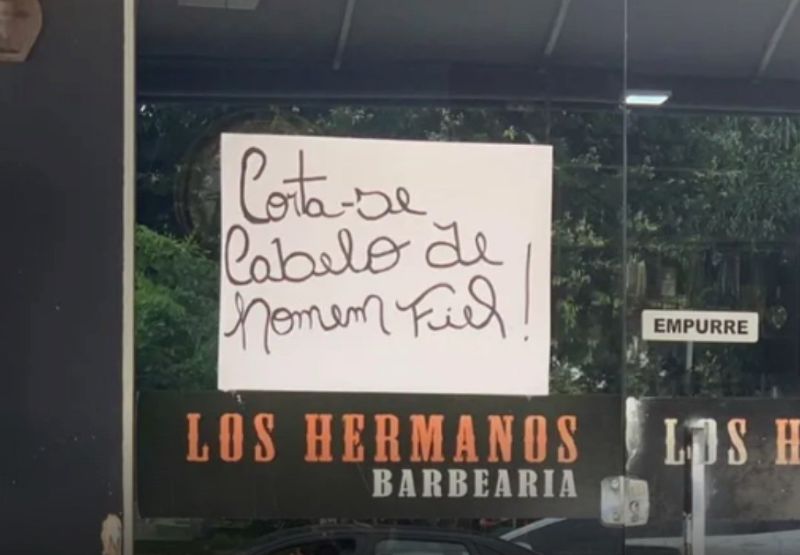 Corta-se
Cabelo de
homem Fiel!
EMPURRE
LOS HERMANOS
BARBEARIA
LOS H